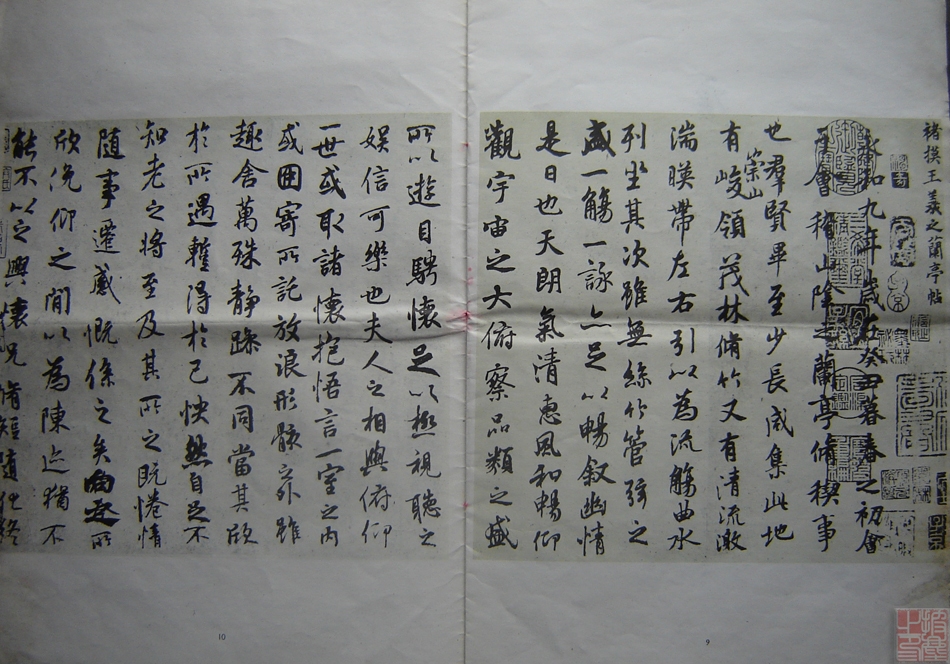 褚摸王羲之蘭亭帖
永和九年歲在癸丑暮春之初會
于會稽山陰之蘭亭脩稧事
也羣賢畢至少長咸集此地
有崇山峻領茂林脩竹又有清流激
湍暎帶左右引以為流觴曲水
列坐其次雖無絲竹管弦之
盛一觴一詠亦足以暢叙幽情
是日也天朗氣清惠風和暢仰
觀宇宙之大俯察品類之盛
所以遊目騁懷足以極視聽之
娛信可樂也夫人之相與俯仰
一世或取諸懷抱悟言一室之內
或因寄所託放浪形骸之外雖
趣舍萬殊靜躁不同當其欣
於所遇蹔得於己怏然自足不
知老之將至及其所之既惓情
隨事遷感慨係之矣向之所
欣俛仰之閒以為陳迹猶不
能不以之興懷況脩短隨化終
10
9